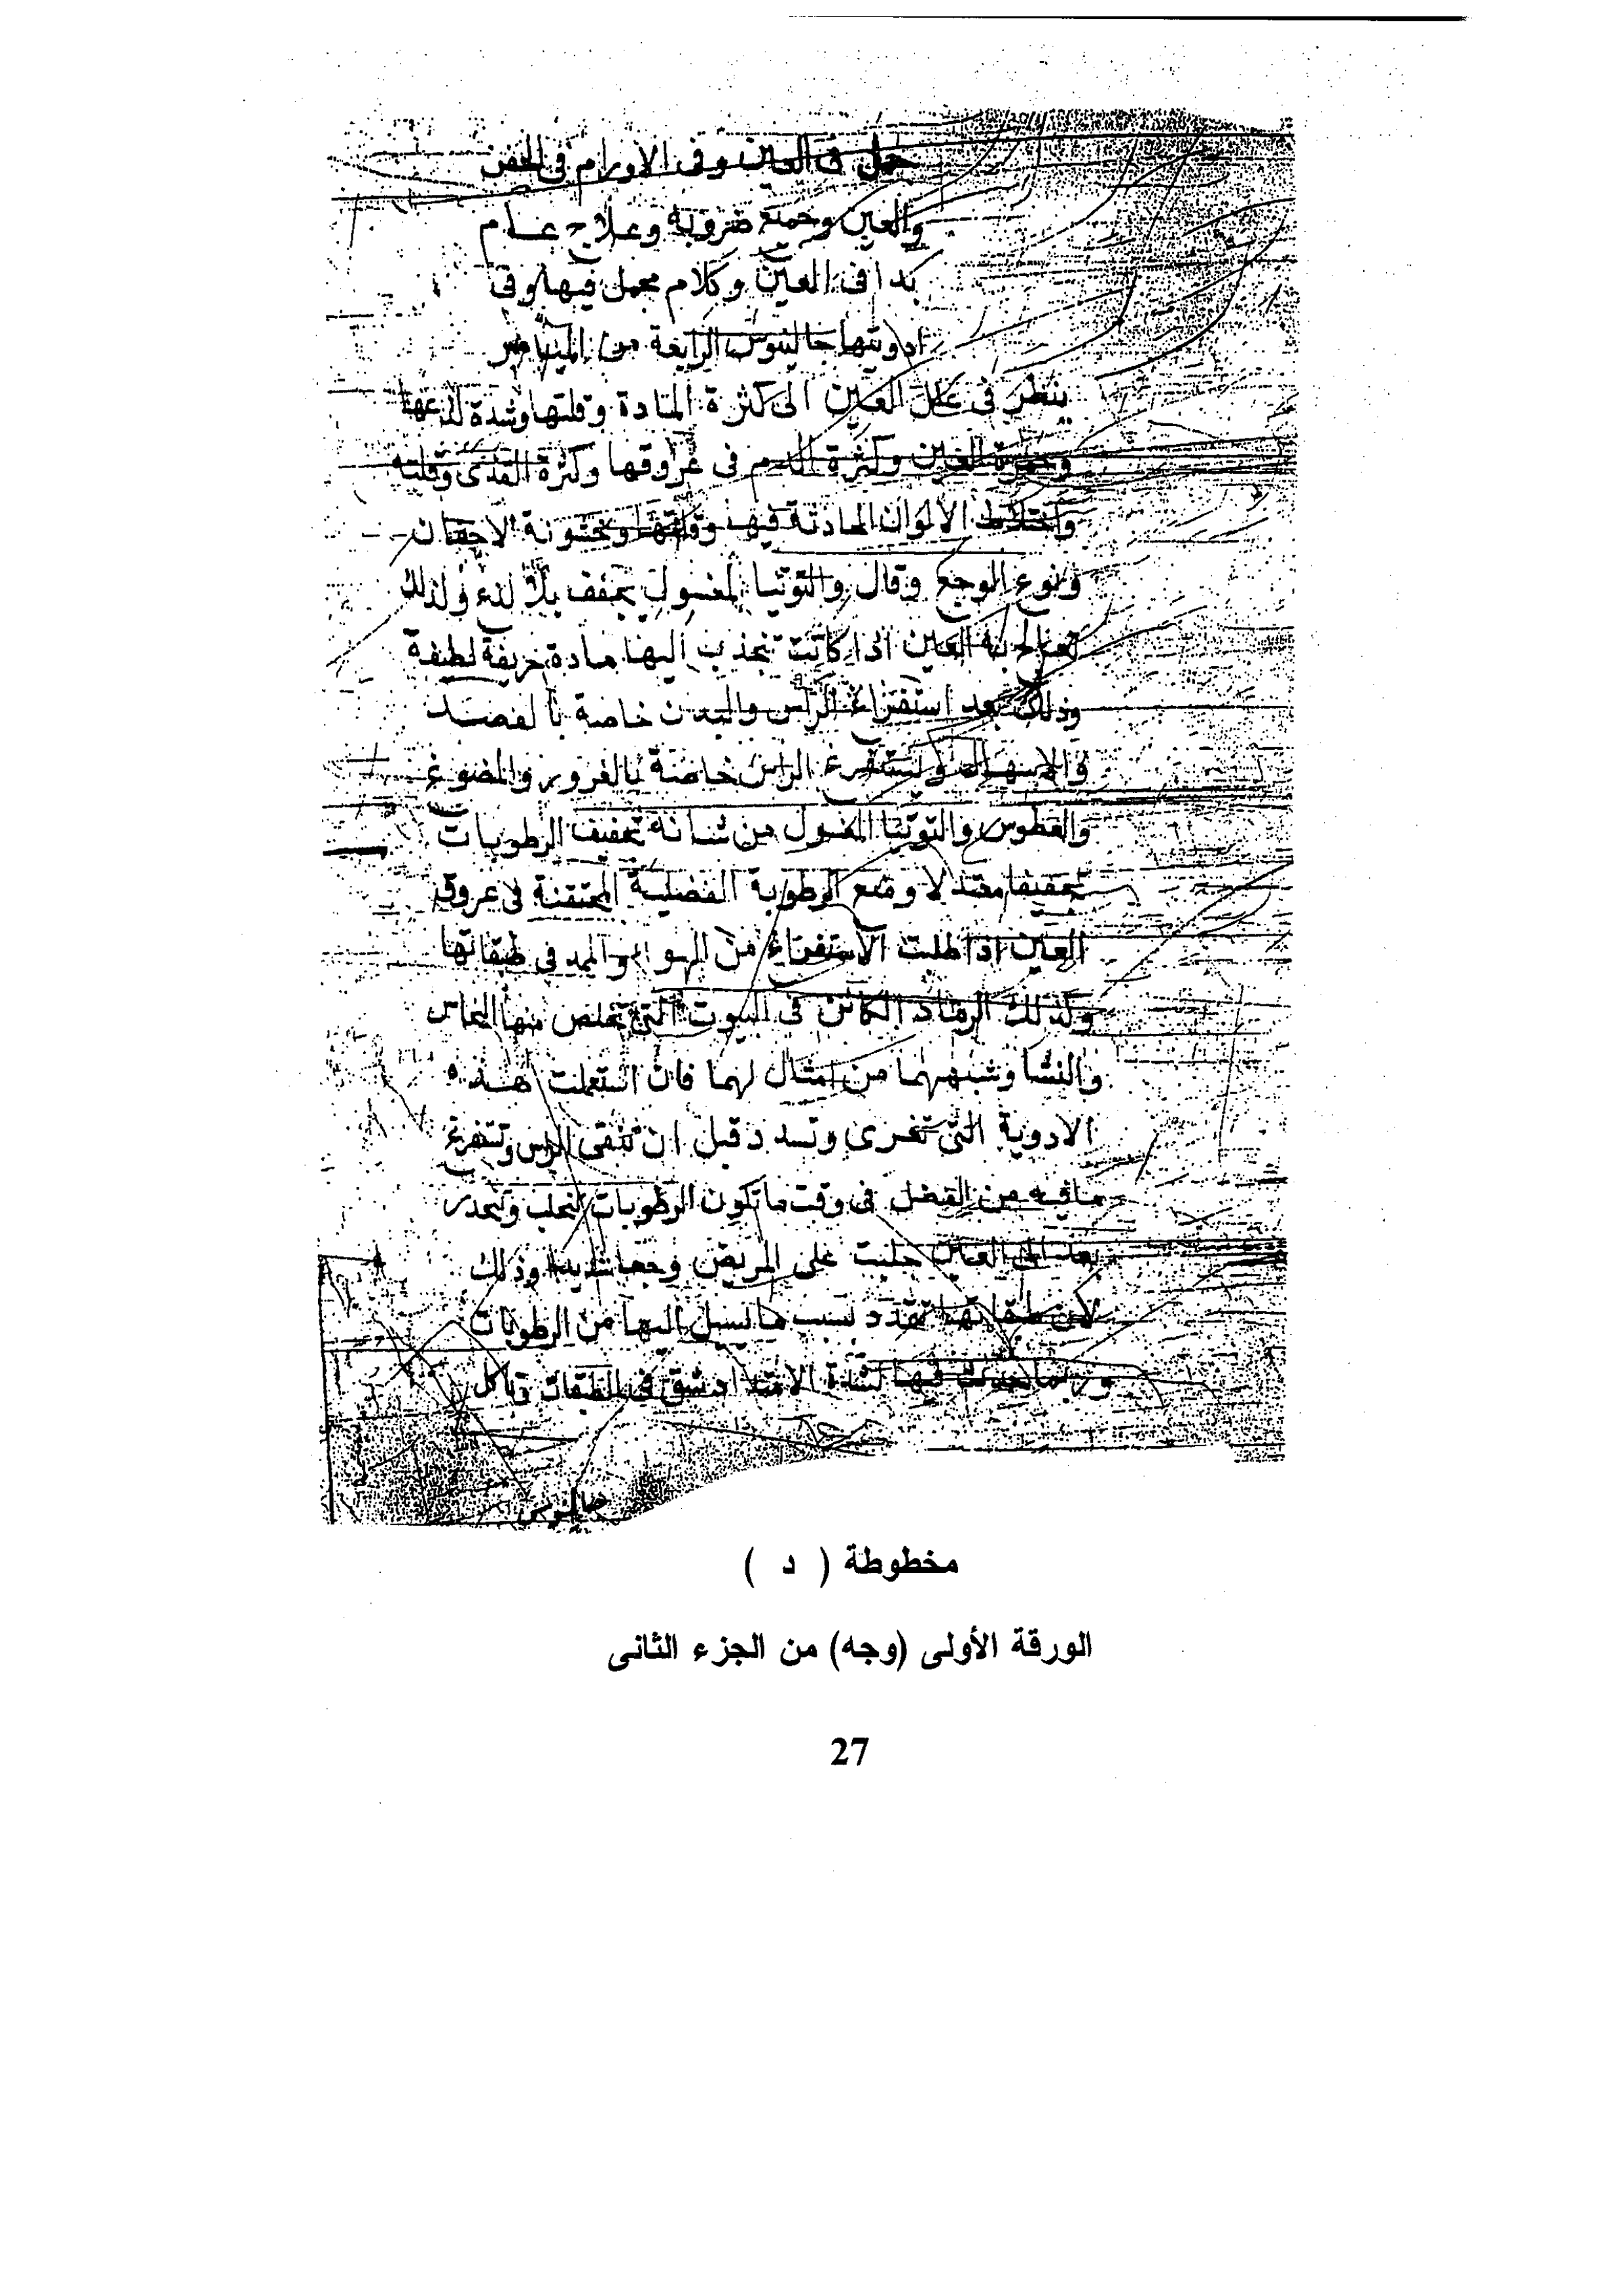 جمل فى العين وفى الاورام فى الجفن
والعين وجميع ضروبه وعلاج عام
بدا فى العين وكلام مجمل فيها وفى
ادويتها جالينوس الرابعة من الميامر
ينظر فى علل العين الى كثرة المادة وقلتها وشدة لذعها
وحمرة العين وكثرة الدم فى عروقها وكثرة القذى وقلته
واختلاط الالوان الحادثة فيها وخشونة الاجفان
ونوع الوجع وقال والتوتيا المغسول يجفف بلا لذع ولذلك
العين اذا كانت تنجذب اليها مادة حريفة لطيفة
وذلك بعد استفراغ الراس والبدن خاصة بالفصد
والاسهال ويستفرغ الراس خاصة بالغرور والمضوغ
والعطوس والتوتيا المغسول من شانه تجفيف الرطوبات
تجفيفا معتدلا ومنع الرطوبة الفضلية المحتقنة فى عروق
العين اذا طلبت الاستفراغ من فى طبقاتها
وكذلك الرماد الكائن فى البيوت التى تخلص منها النحاس
والنشا وشبههما من امثال لهما فان استعملت هذه
الادوية التى تغرى وتسدد قبل ان تنقى الراس وتستفرغ
مافيه من الفضل فى وقت ماتكون الرطوبات تتحلب وتنحدر
بعد الى العين جلبت على المريض وجعا شديدا وذلك
لان طبقاتها تمدد بسبب مايسيل اليها من الرطوبات
وربما حدث فيها لشدة الامتداد شق فى الطبقات وتاكل
جالينوس
مخطوطة ( د )
الورقة الأولى (وجه) من الجزء الثانى
27